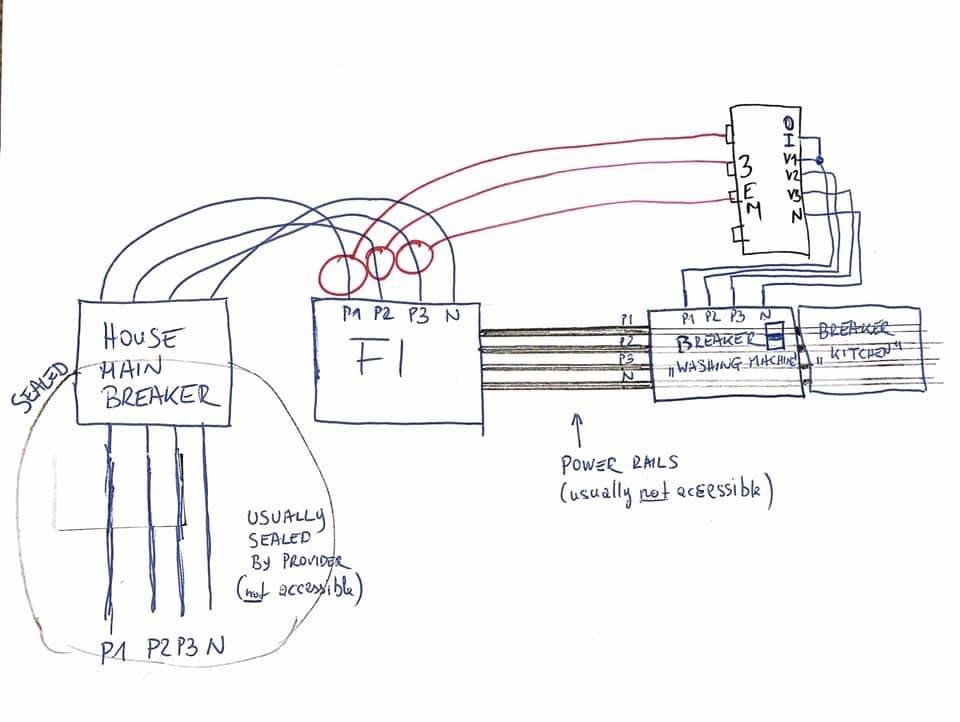 O
I
V1
V2
V3
N
3
E
M
P1 P2 P3 N
FI
HOUSE
MAIN
BREAKER
SEALED
P1
P2
P3
N
P1 P2 P3 N
BREAKER
„WASHING MACHINE"
BREAKER
„KITCHEN"
POWER RAILS
(usually not accessible)
USUALLY
SEALED
BY PROVIDER
(not accessible)
P1 P2 P3 N